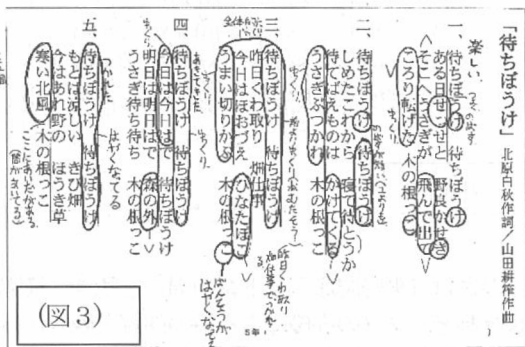 「待ちぼうけ」 北原白秋作詞/山田耕筰作曲
楽しい.
一、待ちぼうけ 待ちぼうけ
ある日せっせと 野良かせぎ
そこへうさぎが 飛んで出て
ころり転げた 木の根っこ
二、待ちぼうけ 待ちぼうけ
しめたこれから 寝て待とうか
待てばえものは かけてくる
うさぎぶつかれ 木の根っこ
三、待ちぼうけ 待ちぼうけ
昨日くわ取り 畑仕事
今日はほおづえ ひなたぼこ
うまい切りかぶ 木の根っこ
ばんそうが
はやくなってる
四、待ちぼうけ 待ちぼうけ
今日は今日はで 待ちぼうけ
明日は明日はで 森の外
うさぎ待ち待ち 木の根っこ
はやくなってる
つかれた
五、待ちぼうけ 待ちぼうけ
もとは涼しい きび畑
今はあれ野の ほうき草
寒い北風 木の根っこ
ここはあいだがある
(図3)